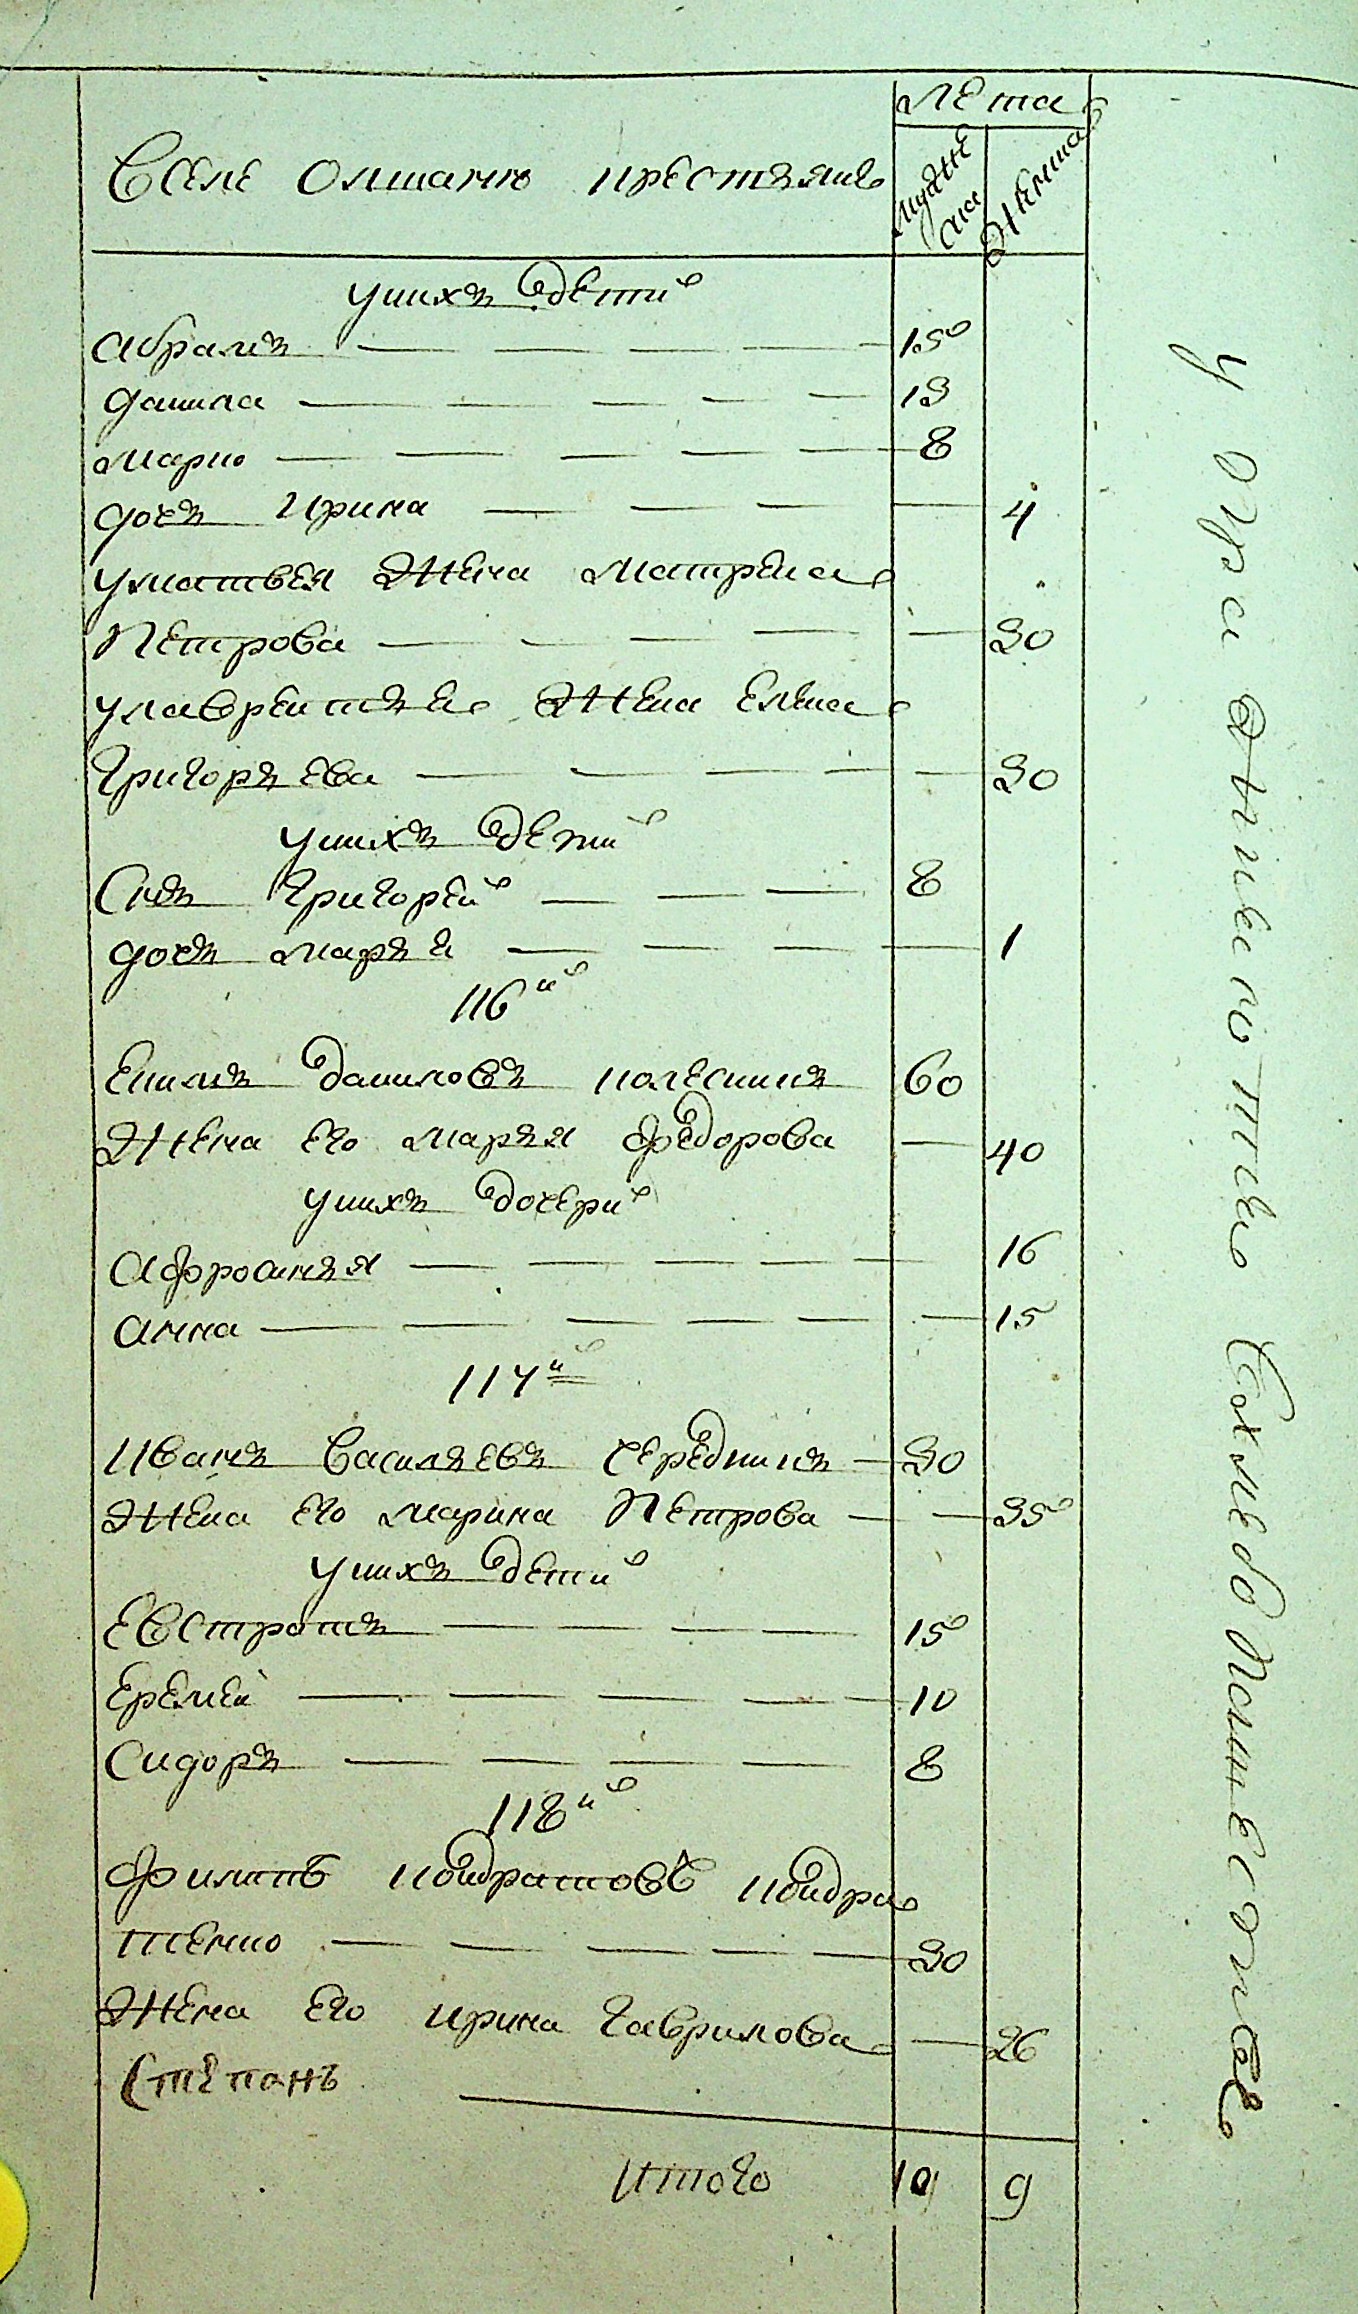 Лета
Вселе Олшанки крестьянъ
мужеска
женска
унихъ детй
Абрамъ 15
Данила 13
Марко 8
дочь Ирина 4
уматвея жена Матрена
Петрова 30
улаврентья жена елена
Григорьева 30
унихъ детй
Снъ Григорей 8
дочь Марья 1
116й
Екимъ Даниловъ колесникъ 60
жена его Марья Федорова 40
унихъ дочерй
Афросинья 16
Анна 15
117й
Иванъ Васильевъ Чередникъ 30
жена его Марина Петрова 35
унихъ детй
Евстратъ 15
Еремей 10
Сидоръ 8
118й
Филипъ Кондратовъ Кондра
тенко 30
жена его Ирина Гаврилова 26
Степанъ
Итого 10 9